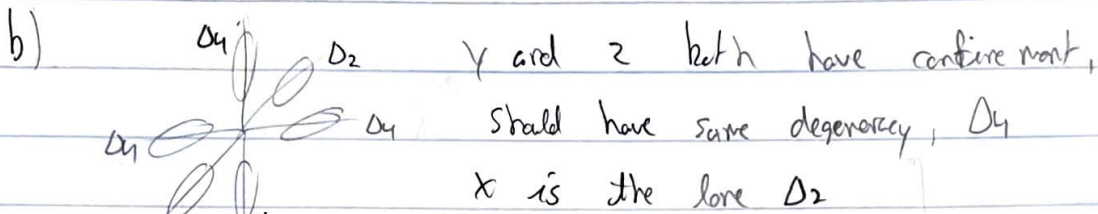 b)
Δ4
Δ2
Y and z both have confinement,
Δ4
should have same degeneracy, Δ4
Δ4
x is the lone Δ2